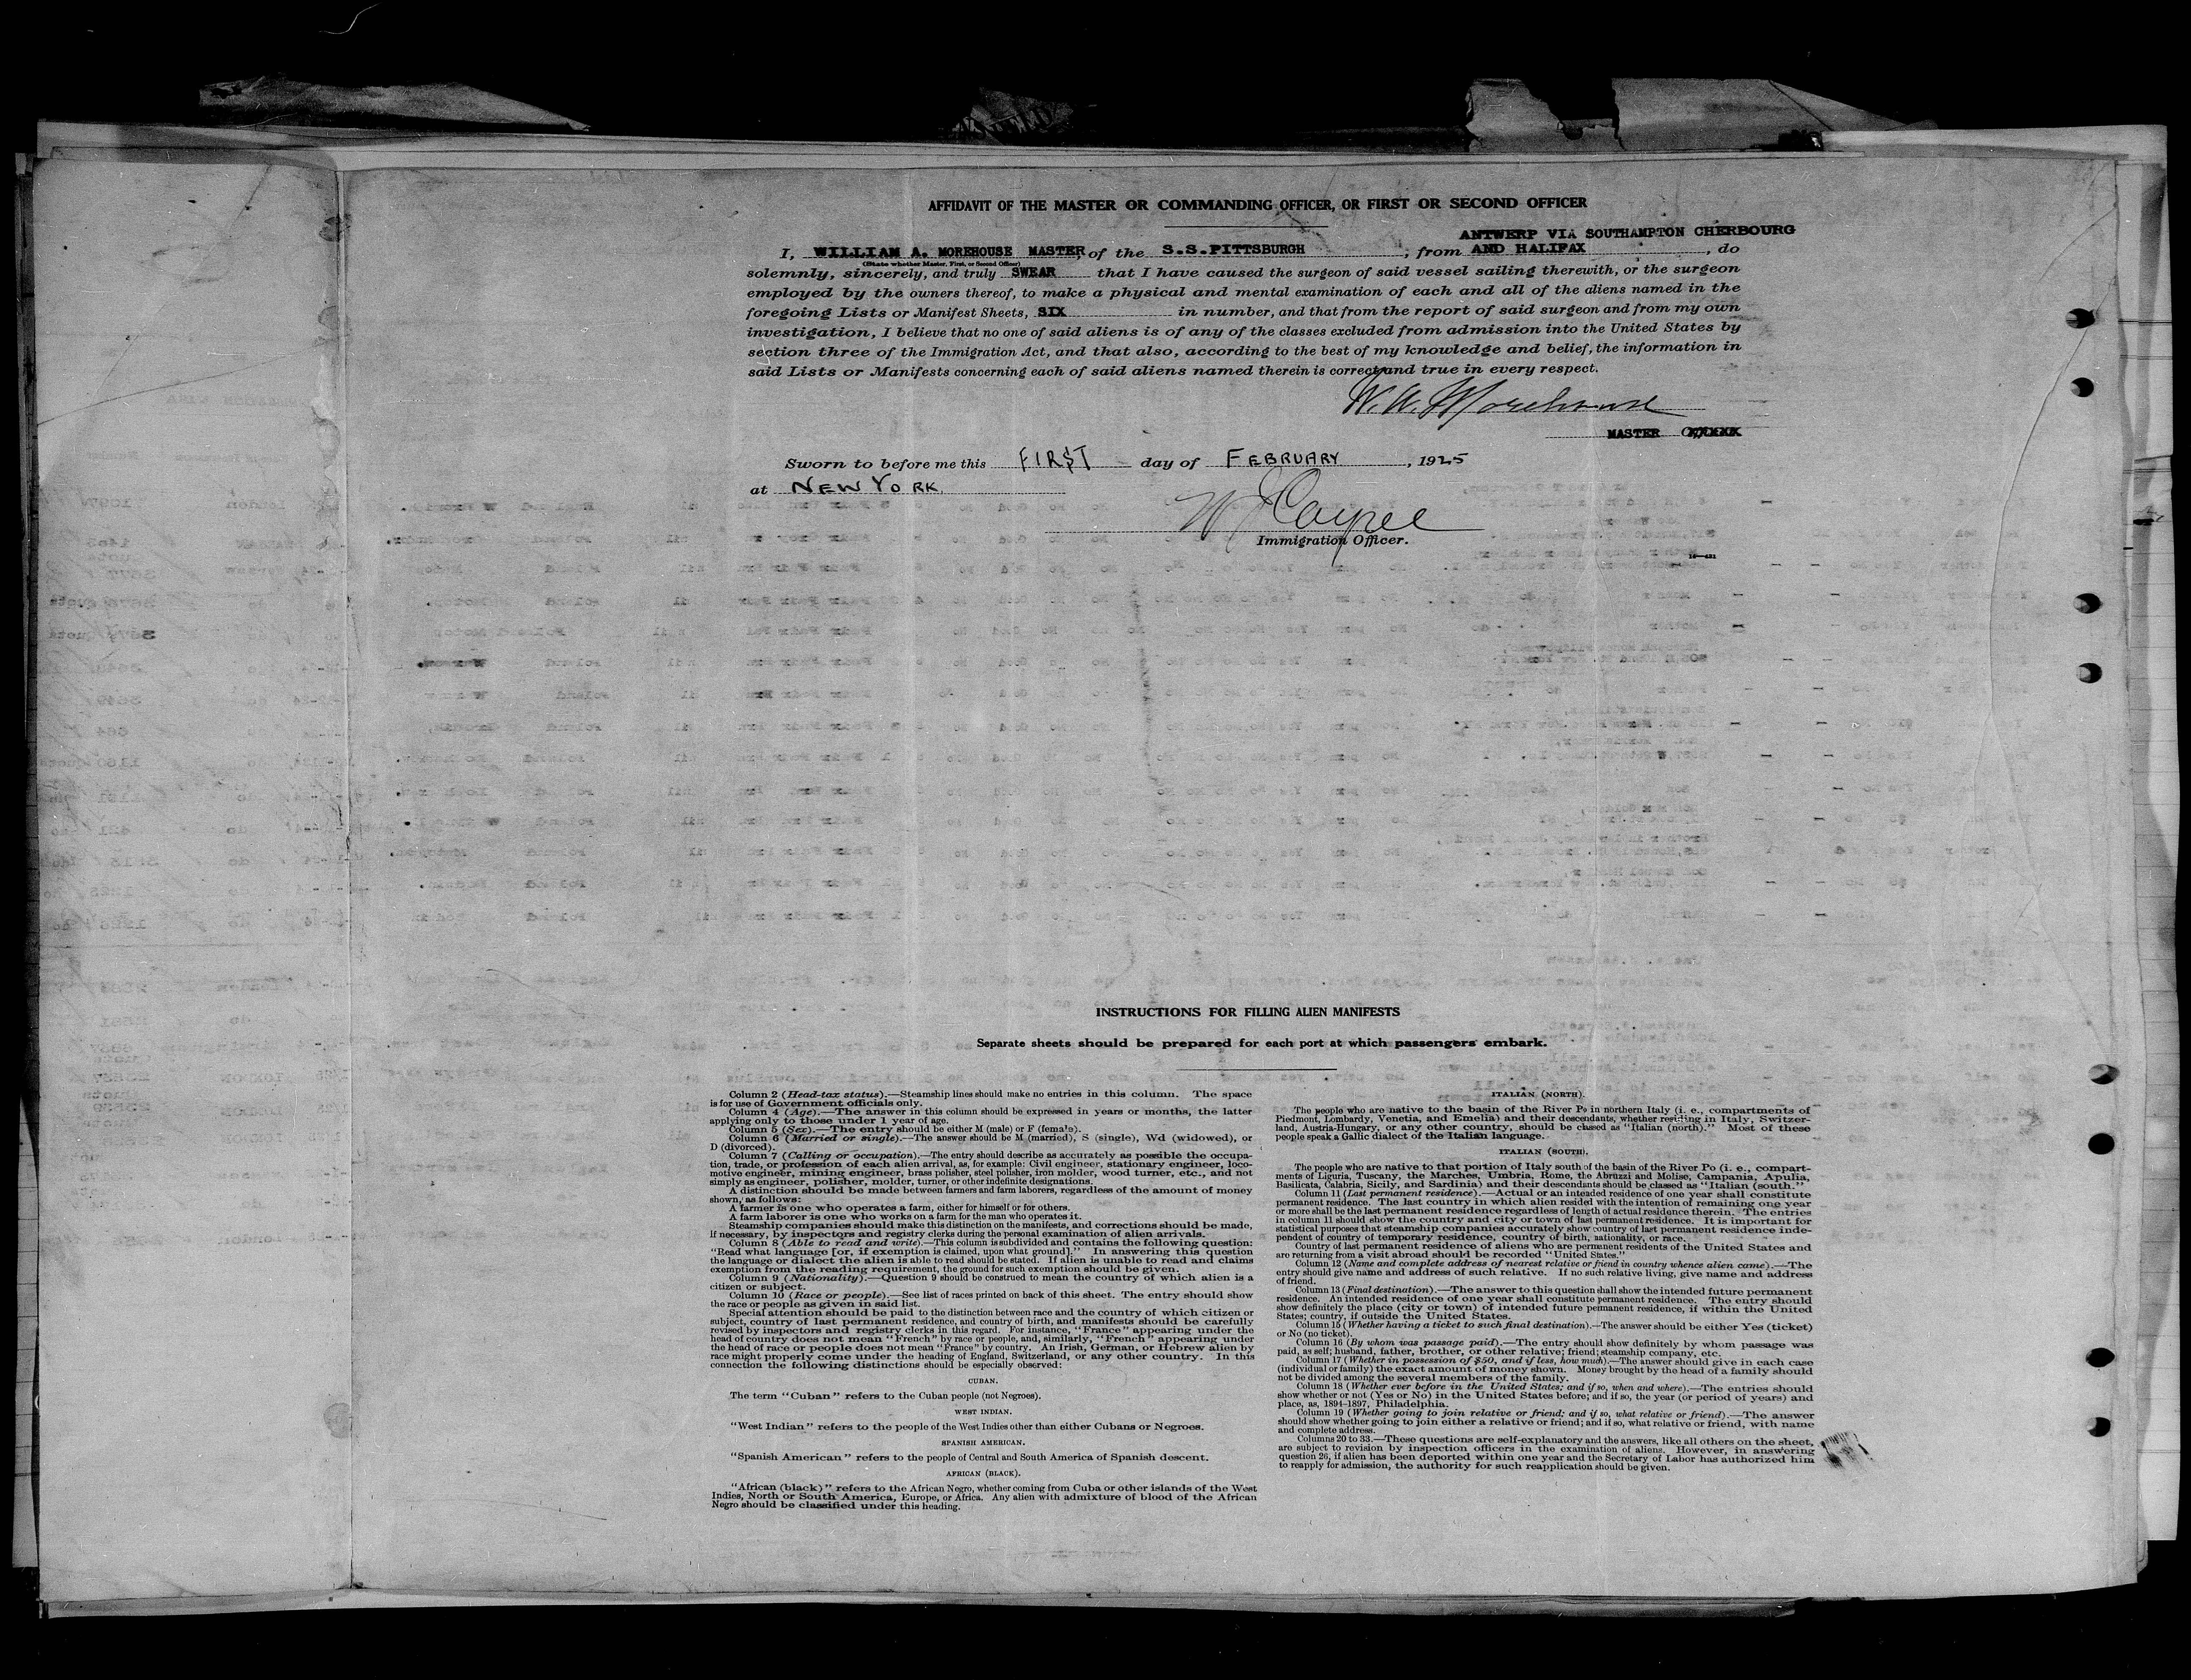 AFFIDAVIT OF THE MASTER OR COMMANDING OFFICER, OR FIRST OR SECOND OFFICER
ANTWERP VIA SOUTHAMPTON CHERBOURG
I, WILLIAM A. MOREHOUSE MASTER, of the S.S.PITTSBURGH, from AND HALIFAX, do
(State whether Master, First, or Second Officer)
solemnly, sincerely, and truly SWEAR that I have caused the surgeon of said vessel sailing therewith, or the surgeon
employed by the owners thereof, to make a physical and mental examination of each and all of the aliens named in the
foregoing Lists or Manifest Sheets, SIX in number, and that from the report of said surgeon and from my own
investigation, I believe that no one of said aliens is of any of the classes excluded from admission into the United States by
section three of the Immigration Act, and that also, according to the best of my knowledge and belief, the information in
said Lists or Manifests concerning each of said aliens named therein is correct and true in every respect.
MASTER
Sworn to before me this FIRST day of FEBRUARY, 1925
at NEW YORK.
Immigration Officer.
INSTRUCTIONS FOR FILLING ALIEN MANIFESTS
Separate sheets should be prepared for each port at which passengers embark.
Column 2 (Head-tax status).—Steamship lines should make no entries in this column. The space
is for use of Government officials only.
Column 4 (Age).—The answer in this column should be expressed in years or months, the latter
applying only to those under 1 year of age.
Column 5 (Sex).—The entry should be either M (male) or F (female).
Column 6 (Married or single).—The answer should be M (married), S (single), Wd (widowed), or
D (divorced).
Column 7 (Calling or occupation).—The entry should describe as accurately as possible the occupa-
tion, trade, or profession of each alien arrival, as, for example: Civil engineer, stationary engineer, loco-
motive engineer, mining engineer, brass polisher, steel polisher, iron molder, wood turner, etc., and not
simply as engineer, polisher, molder, turner, or other indefinite designations.
A distinction should be made between farmers and farm laborers, regardless of the amount of money
shown, as follows:
A farmer is one who operates a farm, either for himself or for others.
A farm laborer is one who works on a farm for the man who operates it.
Steamship companies should make this distinction on the manifests, and corrections should be made,
if necessary, by inspectors and registry clerks during the personal examination of alien arrivals.
Column 8 (Able to read and write).—This column is subdivided and contains the following question:
"Read what language [or, if exemption is claimed, upon what ground]." In answering this question
the language or dialect the alien is able to read should be stated. If alien is unable to read and claims
exemption from the reading requirement, the ground for such exemption should be given.
Column 9 (Nationality).—Question 9 should be construed to mean the country of which alien is a
citizen or subject.
Column 10 (Race or people).—See list of races printed on back of this sheet. The entry should show
the race or people as given in said list.
Special attention should be paid to the distinction between race and the country of which citizen or
subject, country of last permanent residence, and country of birth, and manifests should be carefully
revised by inspectors and registry clerks in this regard. For instance, "France" appearing under the
head of country does not mean "French" by race or people, and, similarly, "French" appearing under
the head of race or people does not mean "France" by country. An Irish, German, or Hebrew alien by
race might properly come under the heading of England, Switzerland, or any other country. In this
connection the following distinctions should be especially observed:
CUBAN.
The term "Cuban" refers to the Cuban people (not Negroes).
WEST INDIAN.
"West Indian" refers to the people of the West Indies other than either Cubans or Negroes.
SPANISH AMERICAN.
"Spanish American" refers to the people of Central and South America of Spanish descent.
AFRICAN (BLACK).
"African (black)" refers to the African Negro, whether coming from Cuba or other islands of the West
Indies, North or South America, Europe, or Africa. Any alien with admixture of blood of the African
Negro should be classified under this heading.
ITALIAN (NORTH).
The people who are native to the basin of the River Po in northern Italy (i. e., compartments of
Piedmont, Lombardy, Venetia, and Emelia) and their descendants, whether residing in Italy, Switzer-
land, Austria-Hungary, or any other country, should be classed as "Italian (north)." Most of these
people speak a Gallic dialect of the Italian language.
ITALIAN (SOUTH).
The people who are native to that portion of Italy south of the basin of the River Po (i. e., compart-
ments of Liguria, Tuscany, the Marches, Umbria, Rome, the Abruzzi and Molise, Campania, Apulia,
Basilicata, Calabria, Sicily, and Sardinia) and their descendants should be classed as "Italian (south."
Column 11 (Last permanent residence).—Actual or an intended residence of one year shall constitute
permanent residence. The last country in which alien resided with the intention of remaining one year
or more shall be the last permanent residence regardless of length of actual residence therein. The entries
in column 11 should show the country and city or town of last permanent residence. It is important for
statistical purposes that steamship companies accurately show country of last permanent residence inde-
pendent of country of temporary residence, country of birth, nationality, or race.
Country of last permanent residence of aliens who are permanent residents of the United States and
are returning from a visit abroad should be recorded "United States."
Column 12 (Name and complete address of nearest relative or friend in country whence alien came).—The
entry should give name and address of such relative. If no such relative living, give name and address
of friend.
Column 13 (Final destination).—The answer to this question shall show the intended future permanent
residence. An intended residence of one year shall constitute permanent residence. The entry should
show definitely the place (city or town) of intended future permanent residence, if within the United
States; country, if outside the United States.
Column 15 (Whether having a ticket to such final destination).—The answer should be either Yes (ticket)
or No (no ticket).
Column 16 (By whom was passage paid).—The entry should show definitely by whom passage was
paid, as self; husband, father, brother, or other relative; friend; steamship company, etc.
Column 17 (Whether in possession of $50, and if less, how much).—The answer should give in each case
(individual or family) the exact amount of money shown. Money brought by the head of a family should
not be divided among the several members of the family.
Column 18 (Whether ever before in the United States; and if so, when and where).—The entries should
show whether or not (Yes or No) in the United States before; and if so, the year (or period of years) and
place, as, 1894–1897, Philadelphia.
Column 19 (Whether going to join relative or friend; and if so, what relative or friend).—The answer
should show whether going to join either a relative or friend; and if so, what relative or friend, with name
and complete address.
Columns 20 to 33.—These questions are self-explanatory and the answers, like all others on the sheet,
are subject to revision by inspection officers in the examination of aliens. However, in answering
question 26, if alien has been deported within one year and the Secretary of Labor has authorized him
to reapply for admission, the authority for such reapplication should be given.